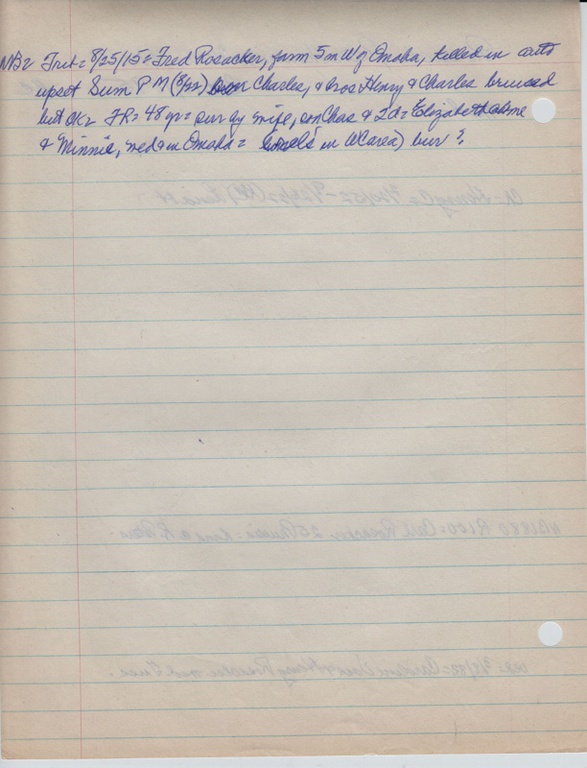 NB= Trib= 8/25/15= Fred Rosacker, farm 5 m W of Omaha, killed in auto
upset Sun P M (8/22) son Charles, & bros Henry & Charles bruised
but OK= FR= 48 yr= sur by wife, son Chas & 2 d= Elizabeth at home
& Minnie, wed in Omaha= in W area) bur ?